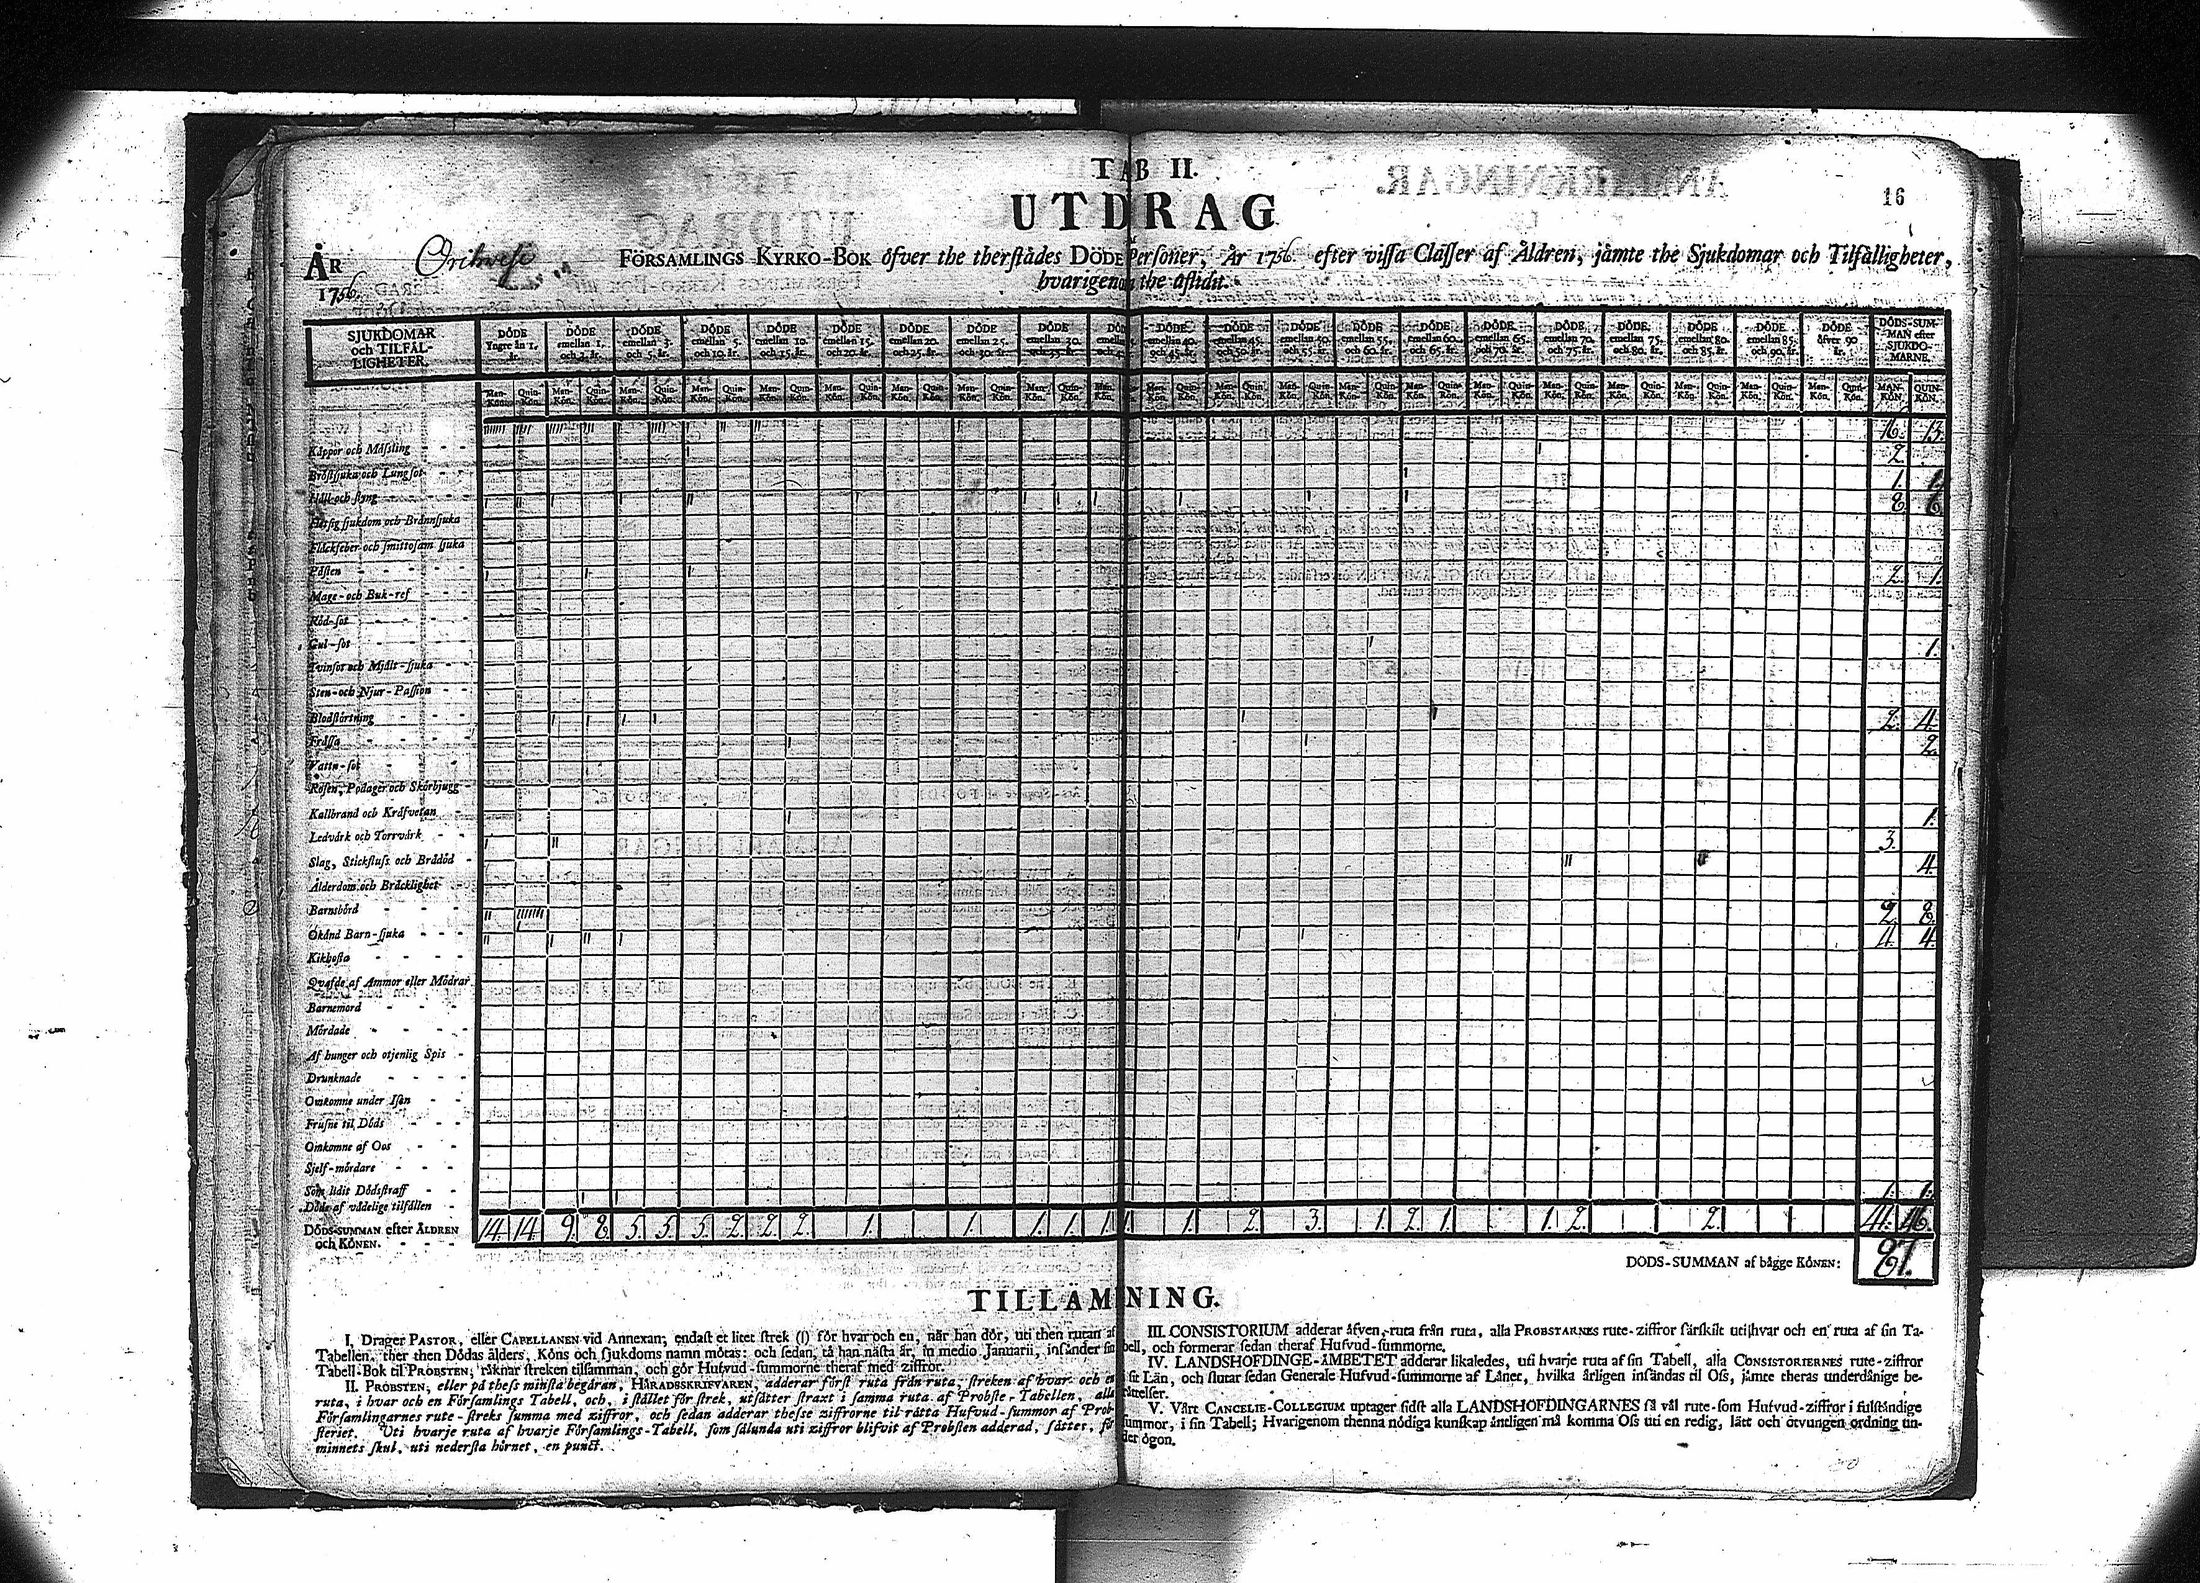 TAB II.
16
UTDRAG
ÅR Orihwesi FÖRSAMLINGS KYRKO-BOK öfver the therstädes DÖDE Personer, År 1756 efter vissa Classer af Åldren, jämte the Sjukdomar och Tilfälligheter,
1756. hvarigenom the aflidit.
SJUKDOMAR och TILFÄLLIGHETER.
DÖDE Yngre än 1. år.
DÖDE emellan 1. och 3. år.
DÖDE emellan 3. och 5. år.
DÖDE emellan 5. och 10. år.
DÖDE emellan 10. och 15. år.
DÖDE emellan 15. och 20. år.
DÖDE emellan 20. och 25. år.
DÖDE emellan 25. och 30. år.
DÖDE emellan 30.
DÖDE emellan 40. och 45. år.
DÖDE emellan 45. och 50. år.
DÖDE emellan 50. och 55. år.
DÖDE emellan 55. och 60. år.
DÖDE emellan 60. och 65. år.
DÖDE emellan 65. och 70. år.
DÖDE emellan 70. och 75. år.
DÖDE emellan 75. och 80. år.
DÖDE emellan 80. och 85. år.
DÖDE emellan 85. och 90. år.
DÖDE öfver 90 år.
DÖDS-SUMMAN efter SJUKDOMARNE.
Man-Kön. Quin-Kön.
MAN-KÖN QUIN-KÖN.
16. 13.
Kåppor och Mässling 2.
Bröstsjuka och Lungsot 1. 1.
Håll och styng 8. 6.
Hetsig sjukdom och Brännsjuka
Fläckfeber och smittosam sjuka
Pästen 2. 1.
Mage- och Buk-ref
Röd-sot
Gul-sot 1.
Tvinsot och Mjält-sjuka
Sten- och Njur-Passion
Blodstörtning 2. 4.
Frässa 2.
Vattn-sot
Rosen, Podager och Skörbjugg
Kallbrand och Kräfvetan 1.
Ledvärk och Torrvärk 3.
Slag, Stickfluss och Brådöd 4.
Ålderdom och Bräcklighet
Barnsbörd 2. 8.
Okänd Barn-sjuka 4. 4.
Kikhosta
Qvafde af Ammor eller Mödrar
Barnemord
Mördade
Af hunger och otjenlig Spis
Drunknade
Omkomne under Isen
Frusne til Döds
Omkomne af Oos
Sjelf-mördare
Som lidit Dödsstraff 1. 1.
Döde af vådelige tilfällen
DÖDS-SUMMAN efter ÅLDREN och KÖNEN. 14. 14. 9. 8. 5. 5. 5. 2. 2. 2. 1. 1. 1. 1. 1. 1. 1. 2. 3. 1. 2. 1. 1. 2. 2. 41. 46.
DÖDS-SUMMAN af bägge KÖNEN: 87.
TILLÄMNING.
I. Drager PASTOR, eller CAPELLANEN vid Annexan; endast et litet strek (|) för hvar och en, när han dör, uti then rutan af
Tabellen, ther then Dödas ålders, Köns och sjukdoms namn mötas: och sedan, tå han nästa år, in medio Januarii, insänder sin
Tabell-Bok til PROBSTEN; räknar streken tilsamman, och gör Hufvud-summorne theraf med ziffror.
II. PROBSTEN, eller på thess minsta begäran, HÄRADSSKRIFVAREN, adderar först ruta från ruta, streken af hvar och en
ruta, i hvar och en Församlings Tabell, och, i stället för strek, utsätter straxt i samma ruta af Probste-Tabellen, alla
Församlingarnes rute-streks summa med ziffror, och sedan adderar thesse ziffrorne til rätta Hufvud-summor af Prob-
steriet. Uti hvarje ruta af hvarje Församlings-Tabell, som sålunda uti ziffror blifvit af Probsten adderad, sätter, för
minnets skul, uti nedersta hörnet, en punct.
III. CONSISTORIUM adderar äfven, ruta från ruta, alla PROBSTARNES rute-ziffror särskilt uti hvar och en ruta af sin Ta-
bell, och formerar sedan theraf Hufvud-summorne.
IV. LANDSHOFDINGE-ÄMBETET adderar likaledes, uti hvarje ruta af sin Tabell, alla CONSISTORIERNES rute-ziffror
sit Län, och slutar sedan Generale Hufvud-summorne af Länet, hvilka årligen insändas til Oss, jämte theras underdånige be-
rättelser.
V. Vårt CANCELIE-COLLEGIUM uptager sidst alla LANDSHOFDINGARNES så väl rute-som Hufvud-ziffror i fulständige
summor, i sin Tabell; Hvarigenom thenna nödiga kunskap äntligen må komma Oss uti en redig, lätt och otvungen ordning un-
der ögon.